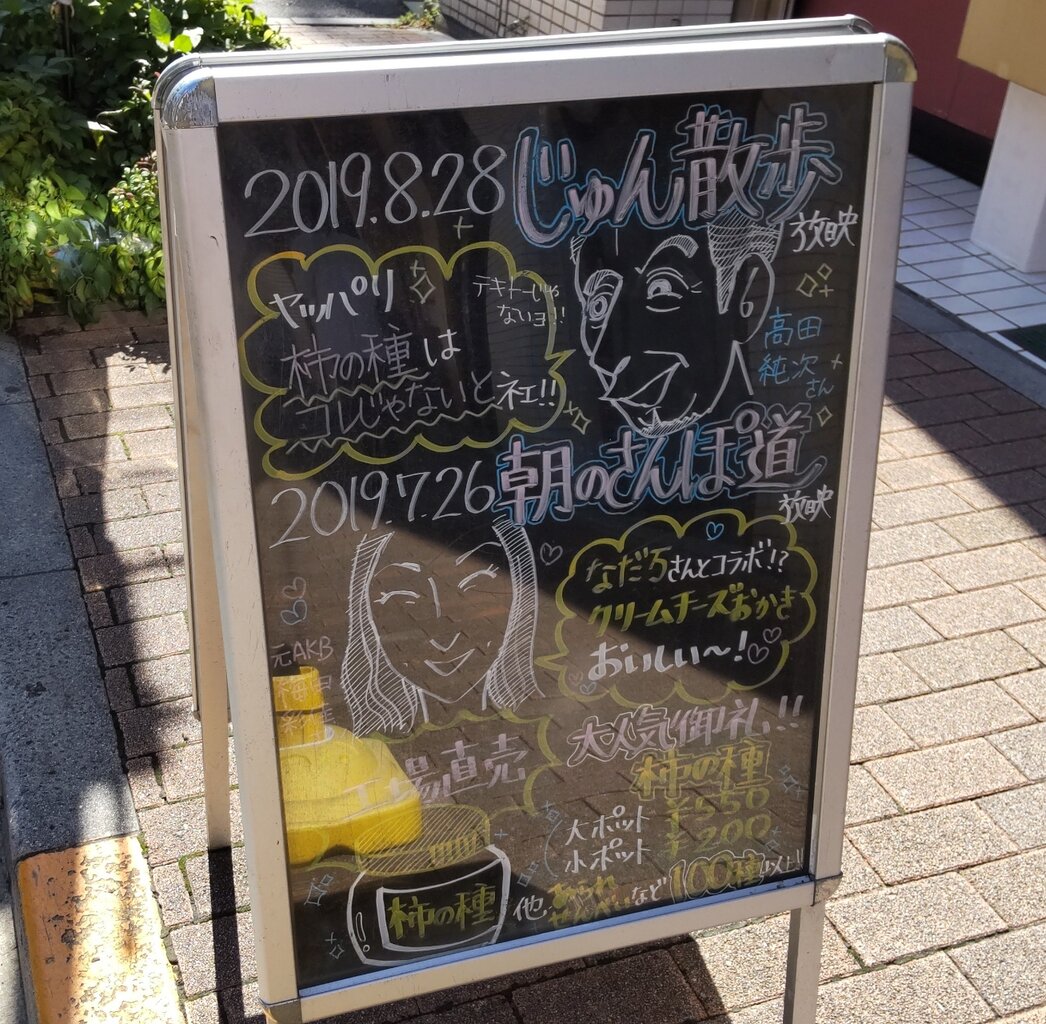 2019.8.28 じゅん散歩
放映
ヤッパリ
柿の種は
コレじゃないとネエ!!
テキトーじゃ
ないヨ!!
高田
純次さん
2019.7.26 朝のさんぽ道
放映
なだろさんとコラボ!?
クリームチーズおかき
おいしい〜!
元AKB
梅田
大人気御礼!!
場直売
柿の種
大ポット ¥550
小ポット ¥200
他、あられ
せんべいなど100種以上!!
柿の種